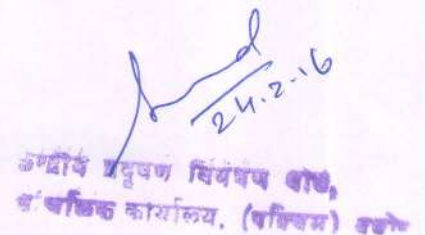 24.2.16
केन्द्रीय प्रदूषण नियंत्रण बोर्ड,
कार्यालय, (पश्चिम)